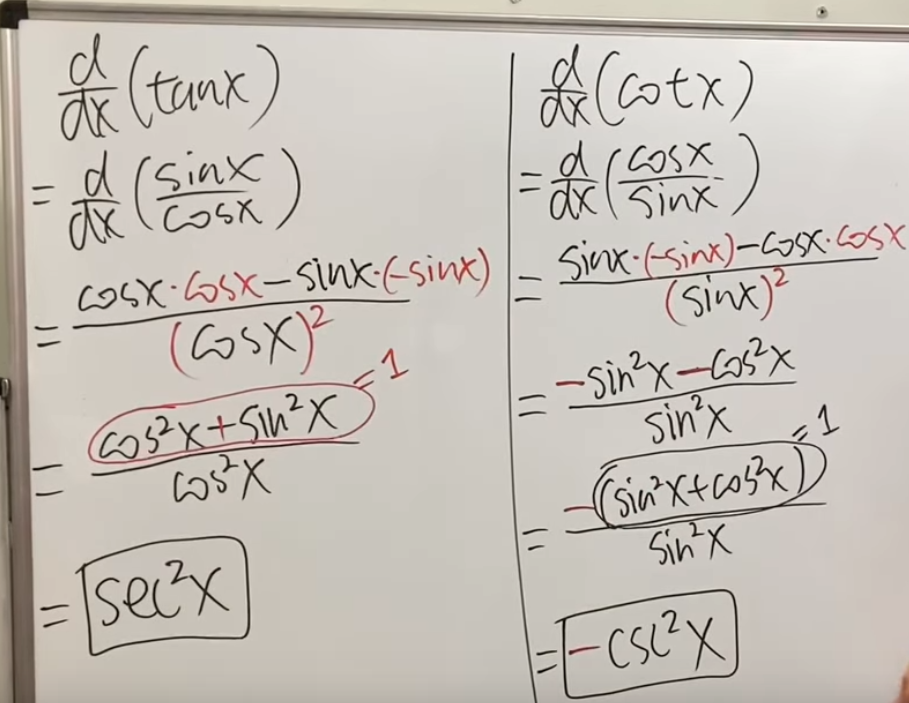 d/dx (tanx)
= d/dx (sinx/cosx)
= (cosx·cosx−sinx·(−sinx))/(cosx)²
= (cos²x+sin²x)/cos²x =1
= sec²x
d/dx (cotx)
= d/dx (cosx/sinx)
= (sinx·(−sinx)−cosx·cosx)/(sinx)²
= (−sin²x−cos²x)/sin²x
= −(sin²x+cos²x)/sin²x =1
= −csc²x